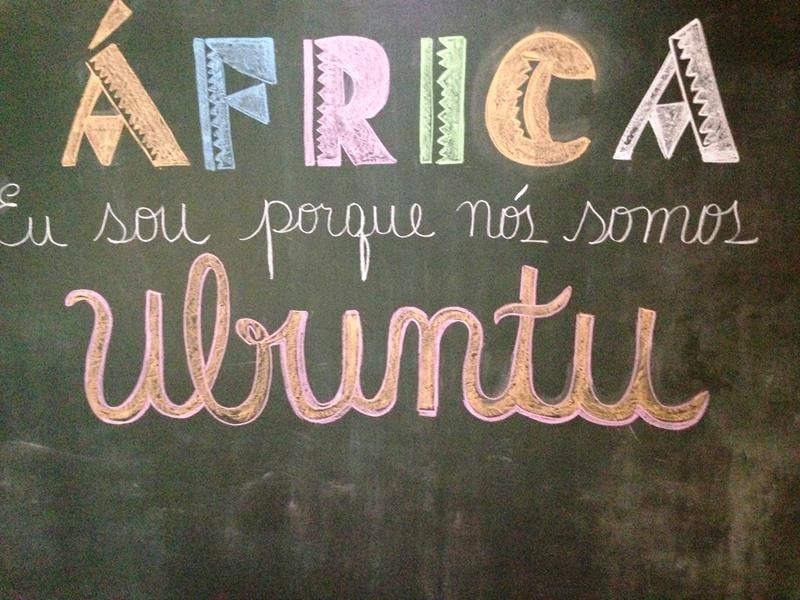 ÁFRICA
Eu sou porque nós somos
Ubuntu